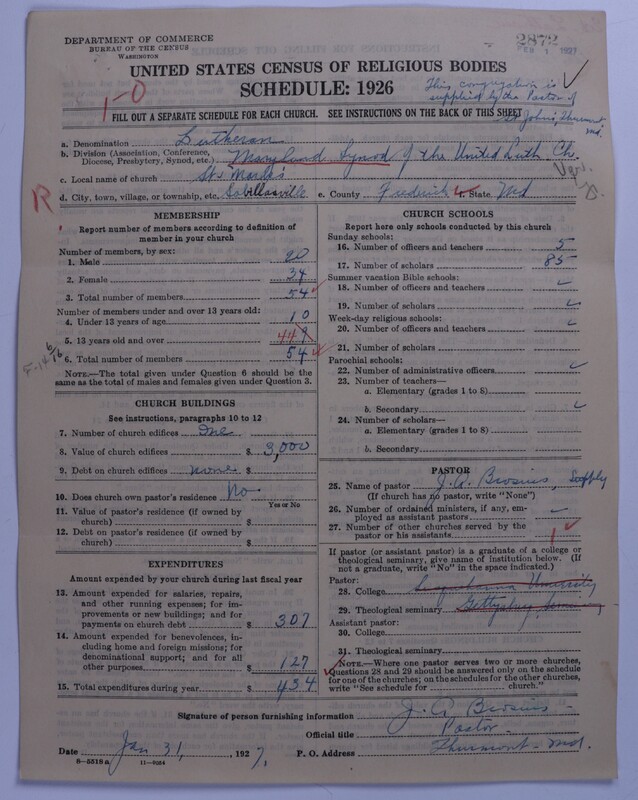 DEPARTMENT OF COMMERCE
BUREAU OF THE CENSUS
WASHINGTON
2872
FEB 1 1927
UNITED STATES CENSUS OF RELIGIOUS BODIES
SCHEDULE: 1926
1-0
This congregation is
supplied by the Pastor of
St. John's, Thurmont,
Md.
FILL OUT A SEPARATE SCHEDULE FOR EACH CHURCH. SEE INSTRUCTIONS ON THE BACK OF THIS SHEET
a. Denomination Lutheran
b. Division (Association, Conference, Diocese, Presbytery, Synod, etc.) Maryland Synod of the United Luth Ch.
c. Local name of church St. Mark's
R
d. City, town, village, or township, etc. Sabillasville e. County Frederick f. State Md
MEMBERSHIP
Report number of members according to definition of
member in your church
Number of members, by sex:
1. Male 20
2. Female 34
3. Total number of members 54
Number of members under and over 13 years old:
4. Under 13 years of age 10
5. 13 years old and over 44
6. Total number of members 54
NOTE.—The total given under Question 6 should be the
same as the total of males and females given under Question 3.
CHURCH BUILDINGS
See instructions, paragraphs 10 to 12
7. Number of church edifices One
8. Value of church edifices $ 3,000
9. Debt on church edifices none $
10. Does church own pastor's residence? No
Yes or No
11. Value of pastor's residence (if owned by
church) $
12. Debt on pastor's residence (if owned by
church) $
EXPENDITURES
Amount expended by your church during last fiscal year
13. Amount expended for salaries, repairs,
and other running expenses; for im-
provements or new buildings; and for
payments on church debt $ 307
14. Amount expended for benevolences, in-
cluding home and foreign missions; for
denominational support; and for all
other purposes $ 127
15. Total expenditures during year $ 434
CHURCH SCHOOLS
Report here only schools conducted by this church
Sunday schools:
16. Number of officers and teachers 5
17. Number of scholars 85
Summer vacation Bible schools:
18. Number of officers and teachers
19. Number of scholars
Week-day religious schools:
20. Number of officers and teachers
21. Number of scholars
Parochial schools:
22. Number of administrative officers
23. Number of teachers—
a. Elementary (grades 1 to 8)
b. Secondary
24. Number of scholars—
a. Elementary (grades 1 to 8)
b. Secondary
PASTOR
25. Name of pastor J. A. Brosius, Supply
(If church has no pastor, write "None")
26. Number of ordained ministers, if any, em-
ployed as assistant pastors
27. Number of other churches served by the
pastor or his assistants 1
If pastor (or assistant pastor) is a graduate of a college or
theological seminary, give name of institution below. (If
not a graduate, write "No" in the space indicated.)
Pastor:
28. College Susquehanna University
29. Theological seminary Gettysburg Seminary
Assistant pastor:
30. College
31. Theological seminary
NOTE.—Where one pastor serves two or more churches,
Questions 28 and 29 should be answered only on the schedule
for one of the churches; on the schedules for the other churches,
write "See schedule for church."
Signature of person furnishing information J. A. Brosius
Official title Pastor
Date Jan 31, 1927, P. O. Address Thurmont - Md.
8—5519a 11—9024